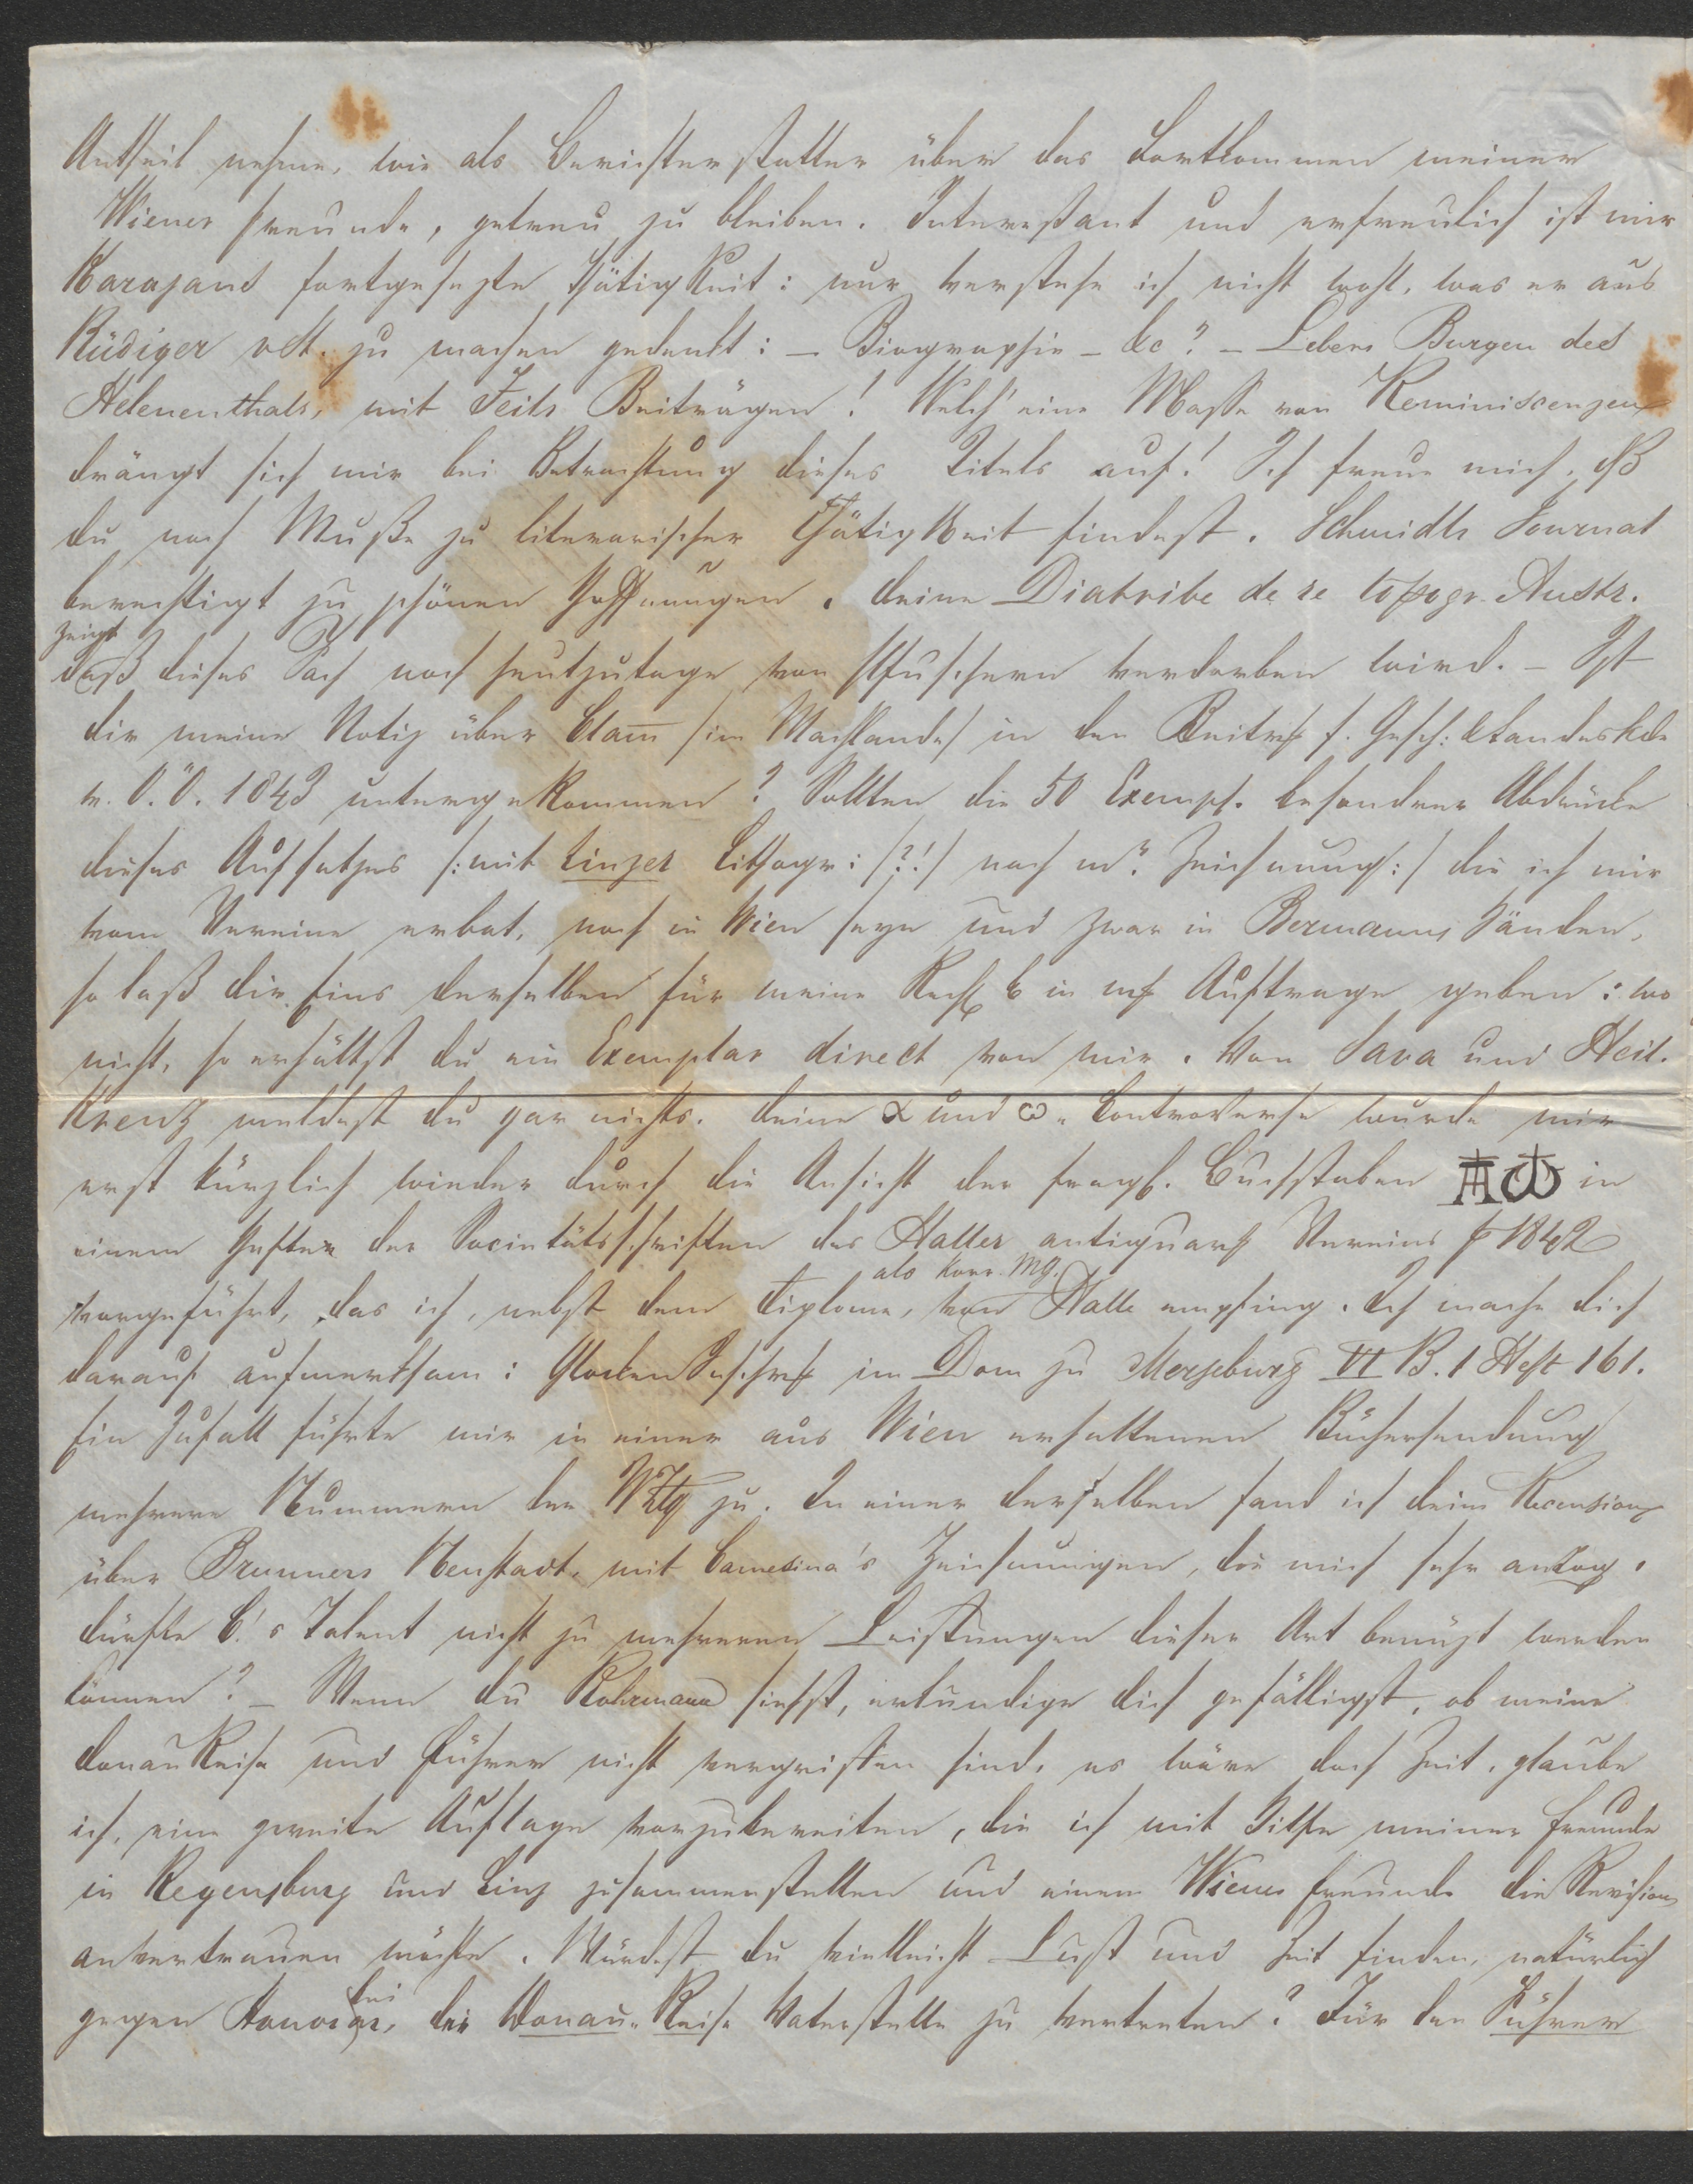 Antheil nehme, wie als Berichterstatter über das Fortkommen meiner
Wiener Freunde, getreu zu bleiben. Interessant und erfreulich ist mir
Karajans fortgesezte Thätigkeit: nur verstehe ich nicht wohl, was er aus
Rüdiger v St. zu machen gedenkt: – Biographie – &c? – Lebers Burgen des
Helenenthals, mit Feils Beiträgen! Welch' eine Masse von Reminiscenzen
drängt sich mir bei Betrachtung dieses Titels auf! Ich freue mich, dß
du noch Muße zu literarischer Thätigkeit findest. Schmidls Journal
berechtigt zu schönen Hoffnungen. Deine Diatribe de re topogr. Austr.
zeigt
daß dieses Fach noch heutzutage von Pfuschern verdorben wird. – Ist
dir meine Notiz über Clam̄ /im Machlande/ in den Beitrg f. Gesch: Landeskde
v. O.Ö. 1843 untergekommen? Sollten die 50 Exempl. besondrer Abdrücke
dieses Aufsatzes /: mit Linzer Lithogr: /?!/ nach mr Zeichnung :/ die ich mir
vom Vereine erbat, noch in Wien seyn und zwar in Bermanns Händen,
so laß dir Eins derselben für meine Rechg in m Auftrage geben: wo
nicht, so erhältst du ein Exemplar direct von mir. Von Sava und Heil.
Kreuz meldest du gar nichts. Deine α und ω = Controverse wurde mir
erst kürzlich wieder durch die Ansicht der fragl. Buchstaben A ω in
einem Hefte der Societätsschriften des Haller antiquar Vereins 1842
als Korr. Mg.
vorgeführt, das ich, nebst dem Diplome, von Halle empfing. Ich mache dich
darauf aufmerksam: Glocken Inschrft im Dom zu Merseburg VI B. 1 Heft 161.
Ein Zufall führte mir in einer aus Wien erhaltenen Büchersendung
mehrere Nummern der WZtg zu. In einer derselben fand ich deine Recension
über Brunners Neustadt, mit Camesina's Zeichnungen, die mich sehr anzog.
Dürfte C.'s Talent nicht zu mehreren Leistungen dieser Art benüzt werden
können? – Wenn du Rohrmann siehst, erkundige dich gefälligst, ob meine
Donau Reise und Führer nicht vergriffen sind, es wäre doch Zeit, glaube
ich, eine zweite Auflage vorzubereiten, die ich mit Hilfe meiner Freunde
in Regensburg und Linz zusammenstellen und einem Wiener Freunde die Revision
anvertrauen möchte. Würdest du vielleicht Lust und Zeit finden, natürlich
bei
gegen Honorar, der Donau=Reise Vaterstelle zu vertreten? Für den Führer